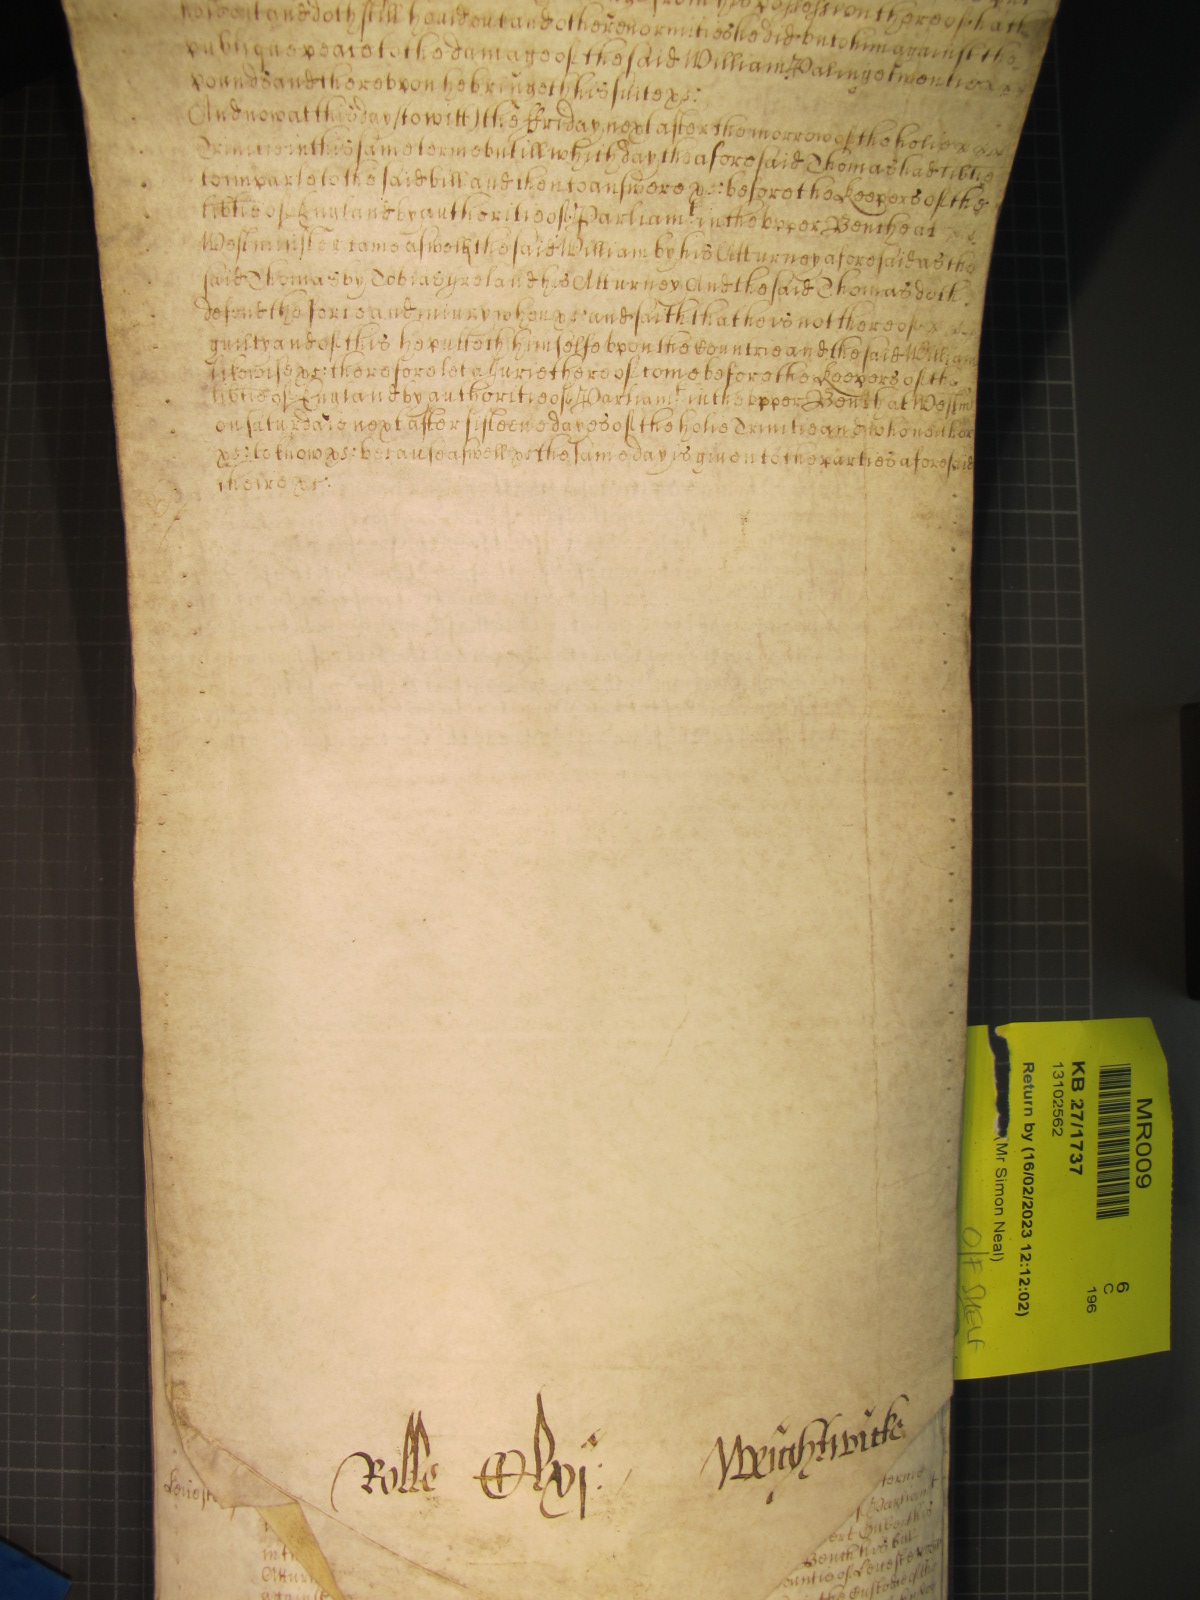 and doth still hould out and other enormities he did bring to him against the
publique peace to the damage of the said William Paling of twentie
pounds and thereupon he bringeth his suite &c:
And now at this day (to witt) the Friday next after the morrow of the holie
Trinitie in this same terme untill which day the aforesaid Thomas had libtie
to imparle to the said bill and then to answere &c: before the Keepers of the
libtie of England by authoritie of Parliamt. in the upper Bench at
Westminster came aswell the said William by his Atturney aforesaid as the
said Thomas by Tobias Ireland his Atturney And the said Thomas doth
defend the force and iniury when &c: and saith that he is not thereof
guilty and of this he putteth himselfe upon the Countrie and the said William
likewise &c: therefore let a Jurie thereof come before the Keepers of the
libtie of England by authoritie of Parliamt. in the upper Bench at Westm
on saturdaie next after fifteene dayes of the holie Trinitie and who neither
&c: to know &c: because aswell &c: the same day is given to the parties aforesaid
there &c:
Rolle Clvj: Weightwicke
terme
Parliamt
Bench this bill
Countie of Leicester
the Custome of the
Attur
against
MR009
KB 27/1737
13102562
Return by (16/02/2023 12:12:02)
(Mr Simon Neal)
6
C
196
O/F SHELF